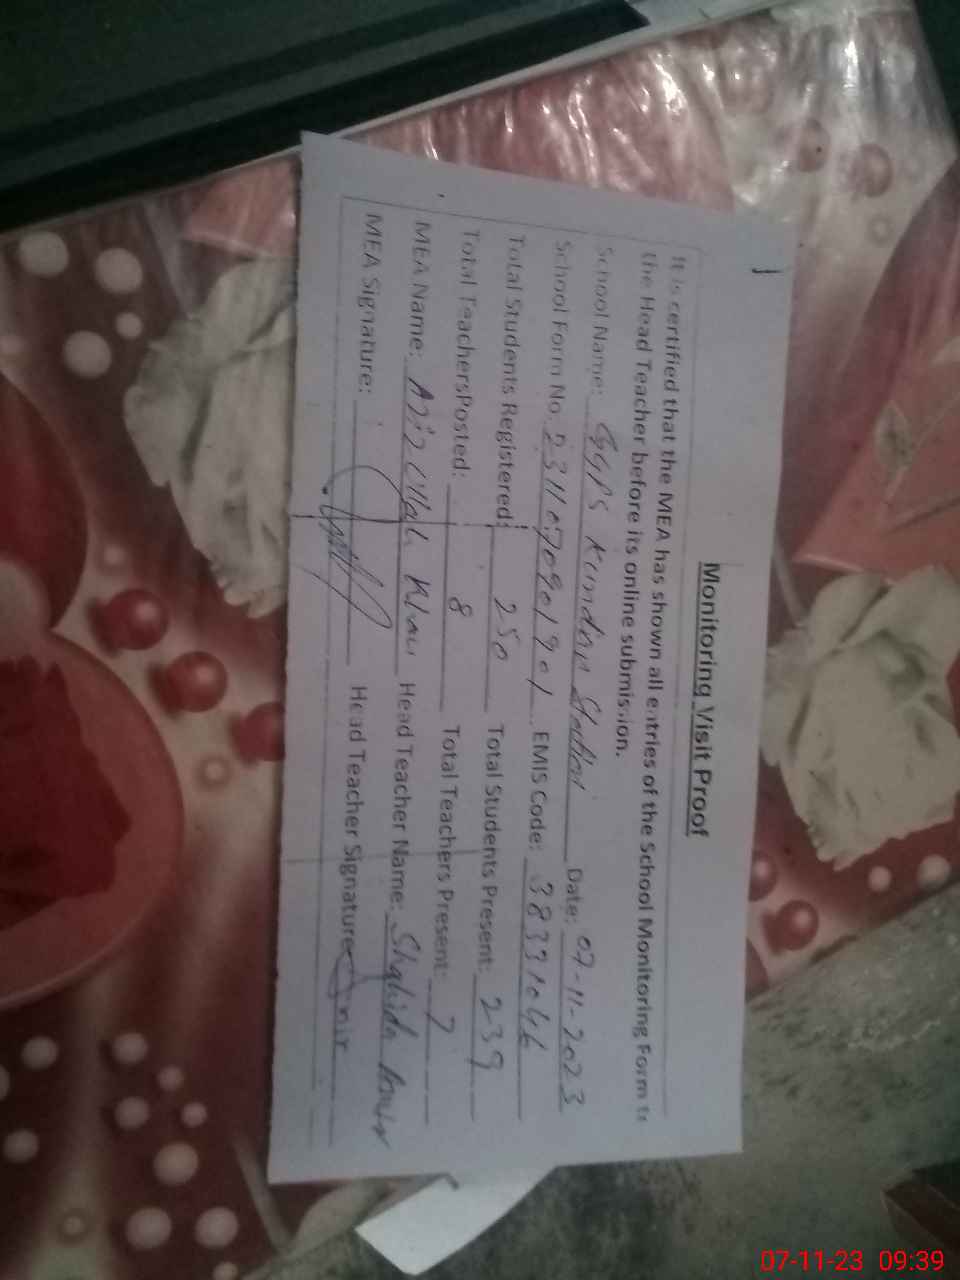 Monitoring Visit Proof
It is certified that the MEA has shown all entries of the School Monitoring Form to
the Head Teacher before its online submission.
School Name: GGPS Date: 07-11-2023
School Form No. EMIS Code: 38331046
Total Students Registered: 250 Total Students Present: 239
Total TeachersPosted: 8 Total Teachers Present: 7
MEA Name: Aziz Ullah Khan Head Teacher Name: Shahida
MEA Signature: Head Teacher Signature
07-11-23 09:39